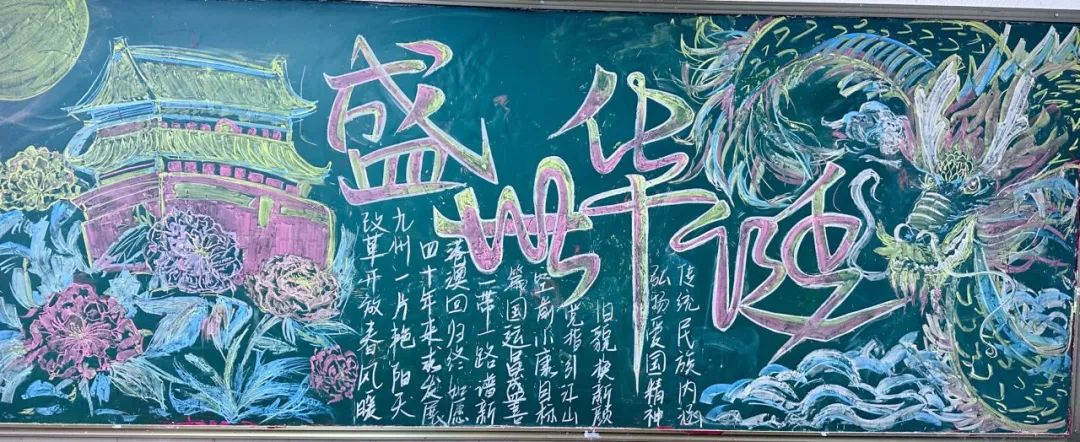 盛世华诞
改革开放春风暖
九州一片艳阳天
四十年来求发展
港澳回归终如愿
一带一路谱新
篇国运昌盛喜
空前小康目标
党指引江山
旧貌换新颜
弘扬爱国精神
传统民族内涵